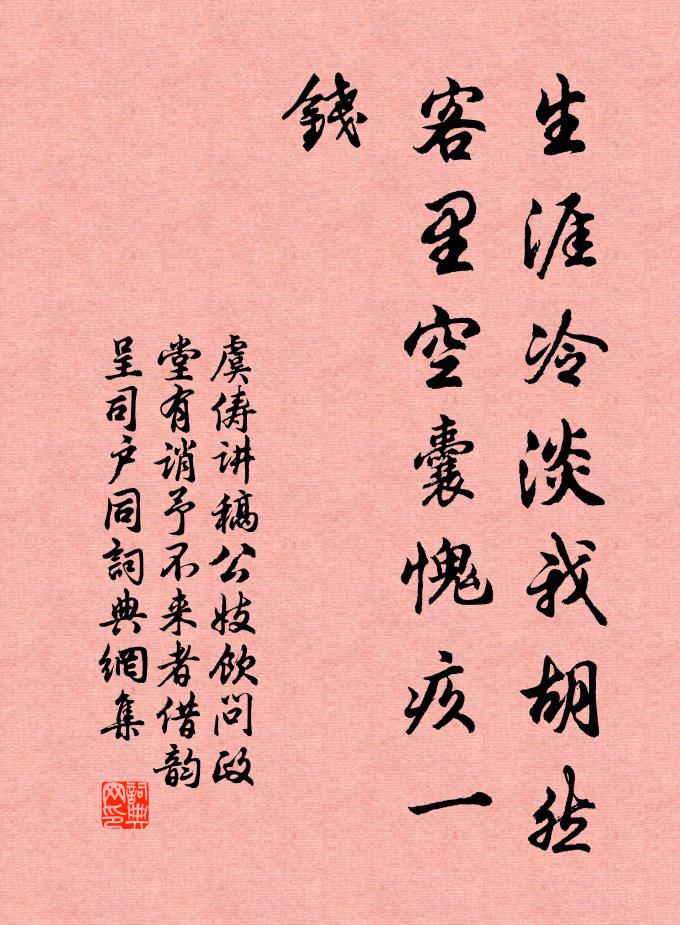 生涯冷淡我胡然
客里空囊愧疚一
錢
虞俦讲稿公妓饮问政
堂有诮予不来者借韵
呈司户同詞典網集
詞典
网印